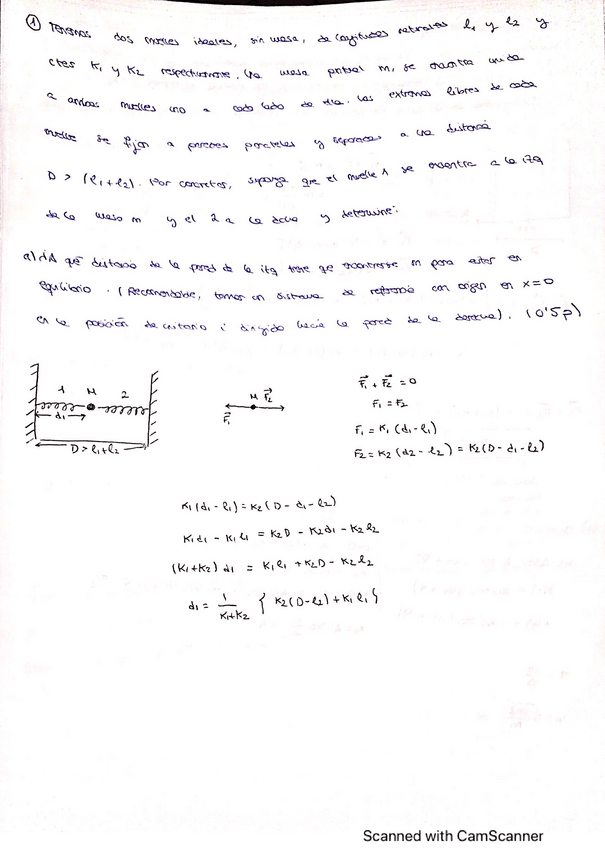 ① Tenemos dos muelles ideales, sin masa, de longitudes naturales l₁ y l₂ y
ctes K₁ y K₂ respectivamente. Una masa puntual m, se encuentra unida
a ambos muelles uno a cada lado de ella. Los extremos libres de cada
muelle se fijan a paredes paralelas y separadas a una distancia
D > (l₁+l₂). Por concretar, suponga que el muelle 1 se encuentra a la izq
de la masa m y el 2 a la dcha y determine:
a) ¿A qué distancia de la pared de la izq tiene que encontrarse m para estar en
equilibrio. (Recomendable, tomar un sistema de referencia con origen en x=0
en la posición de equilibrio i dirigido hacia la pared de la derecha). (0'5p)
1 M 2
d₁
D > l₁+l₂
M F⃗₂
F⃗₁
F⃗₁ + F⃗₂ = 0
F₁ = F₂
F₁ = K₁ (d₁-l₁)
F₂ = K₂ (d₂-l₂) = K₂(D-d₁-l₂)
K₁(d₁-l₁) = K₂(D-d₁-l₂)
K₁d₁ - K₁l₁ = K₂D - K₂d₁ - K₂l₂
(K₁+K₂) d₁ = K₁l₁ + K₂D - K₂l₂
d₁ = 1/(K₁+K₂) { K₂(D-l₂) + K₁l₁ }
Scanned with CamScanner